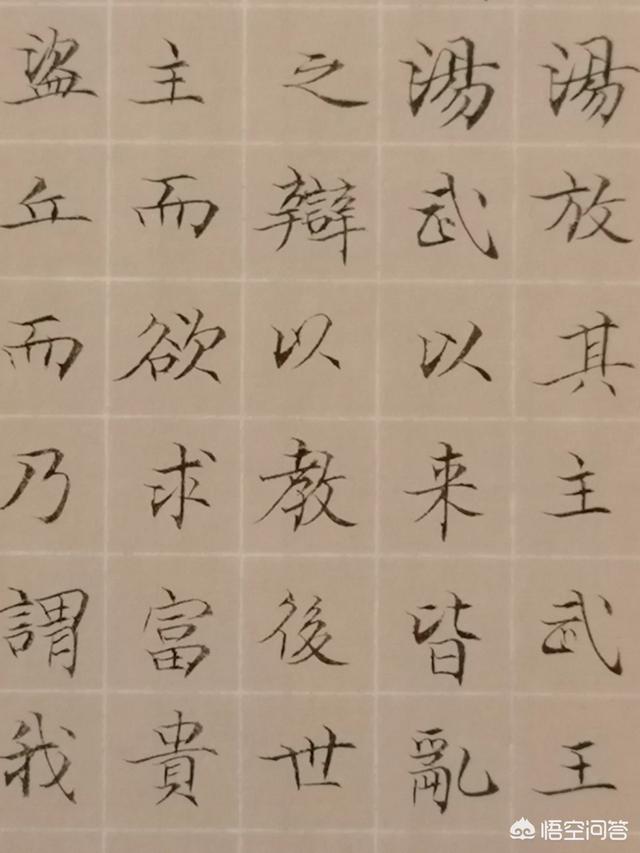 湯放其主武王
湯武以来皆亂
之辯以教後世
主而欲求富貴
盜丘而乃謂我
悟空问答